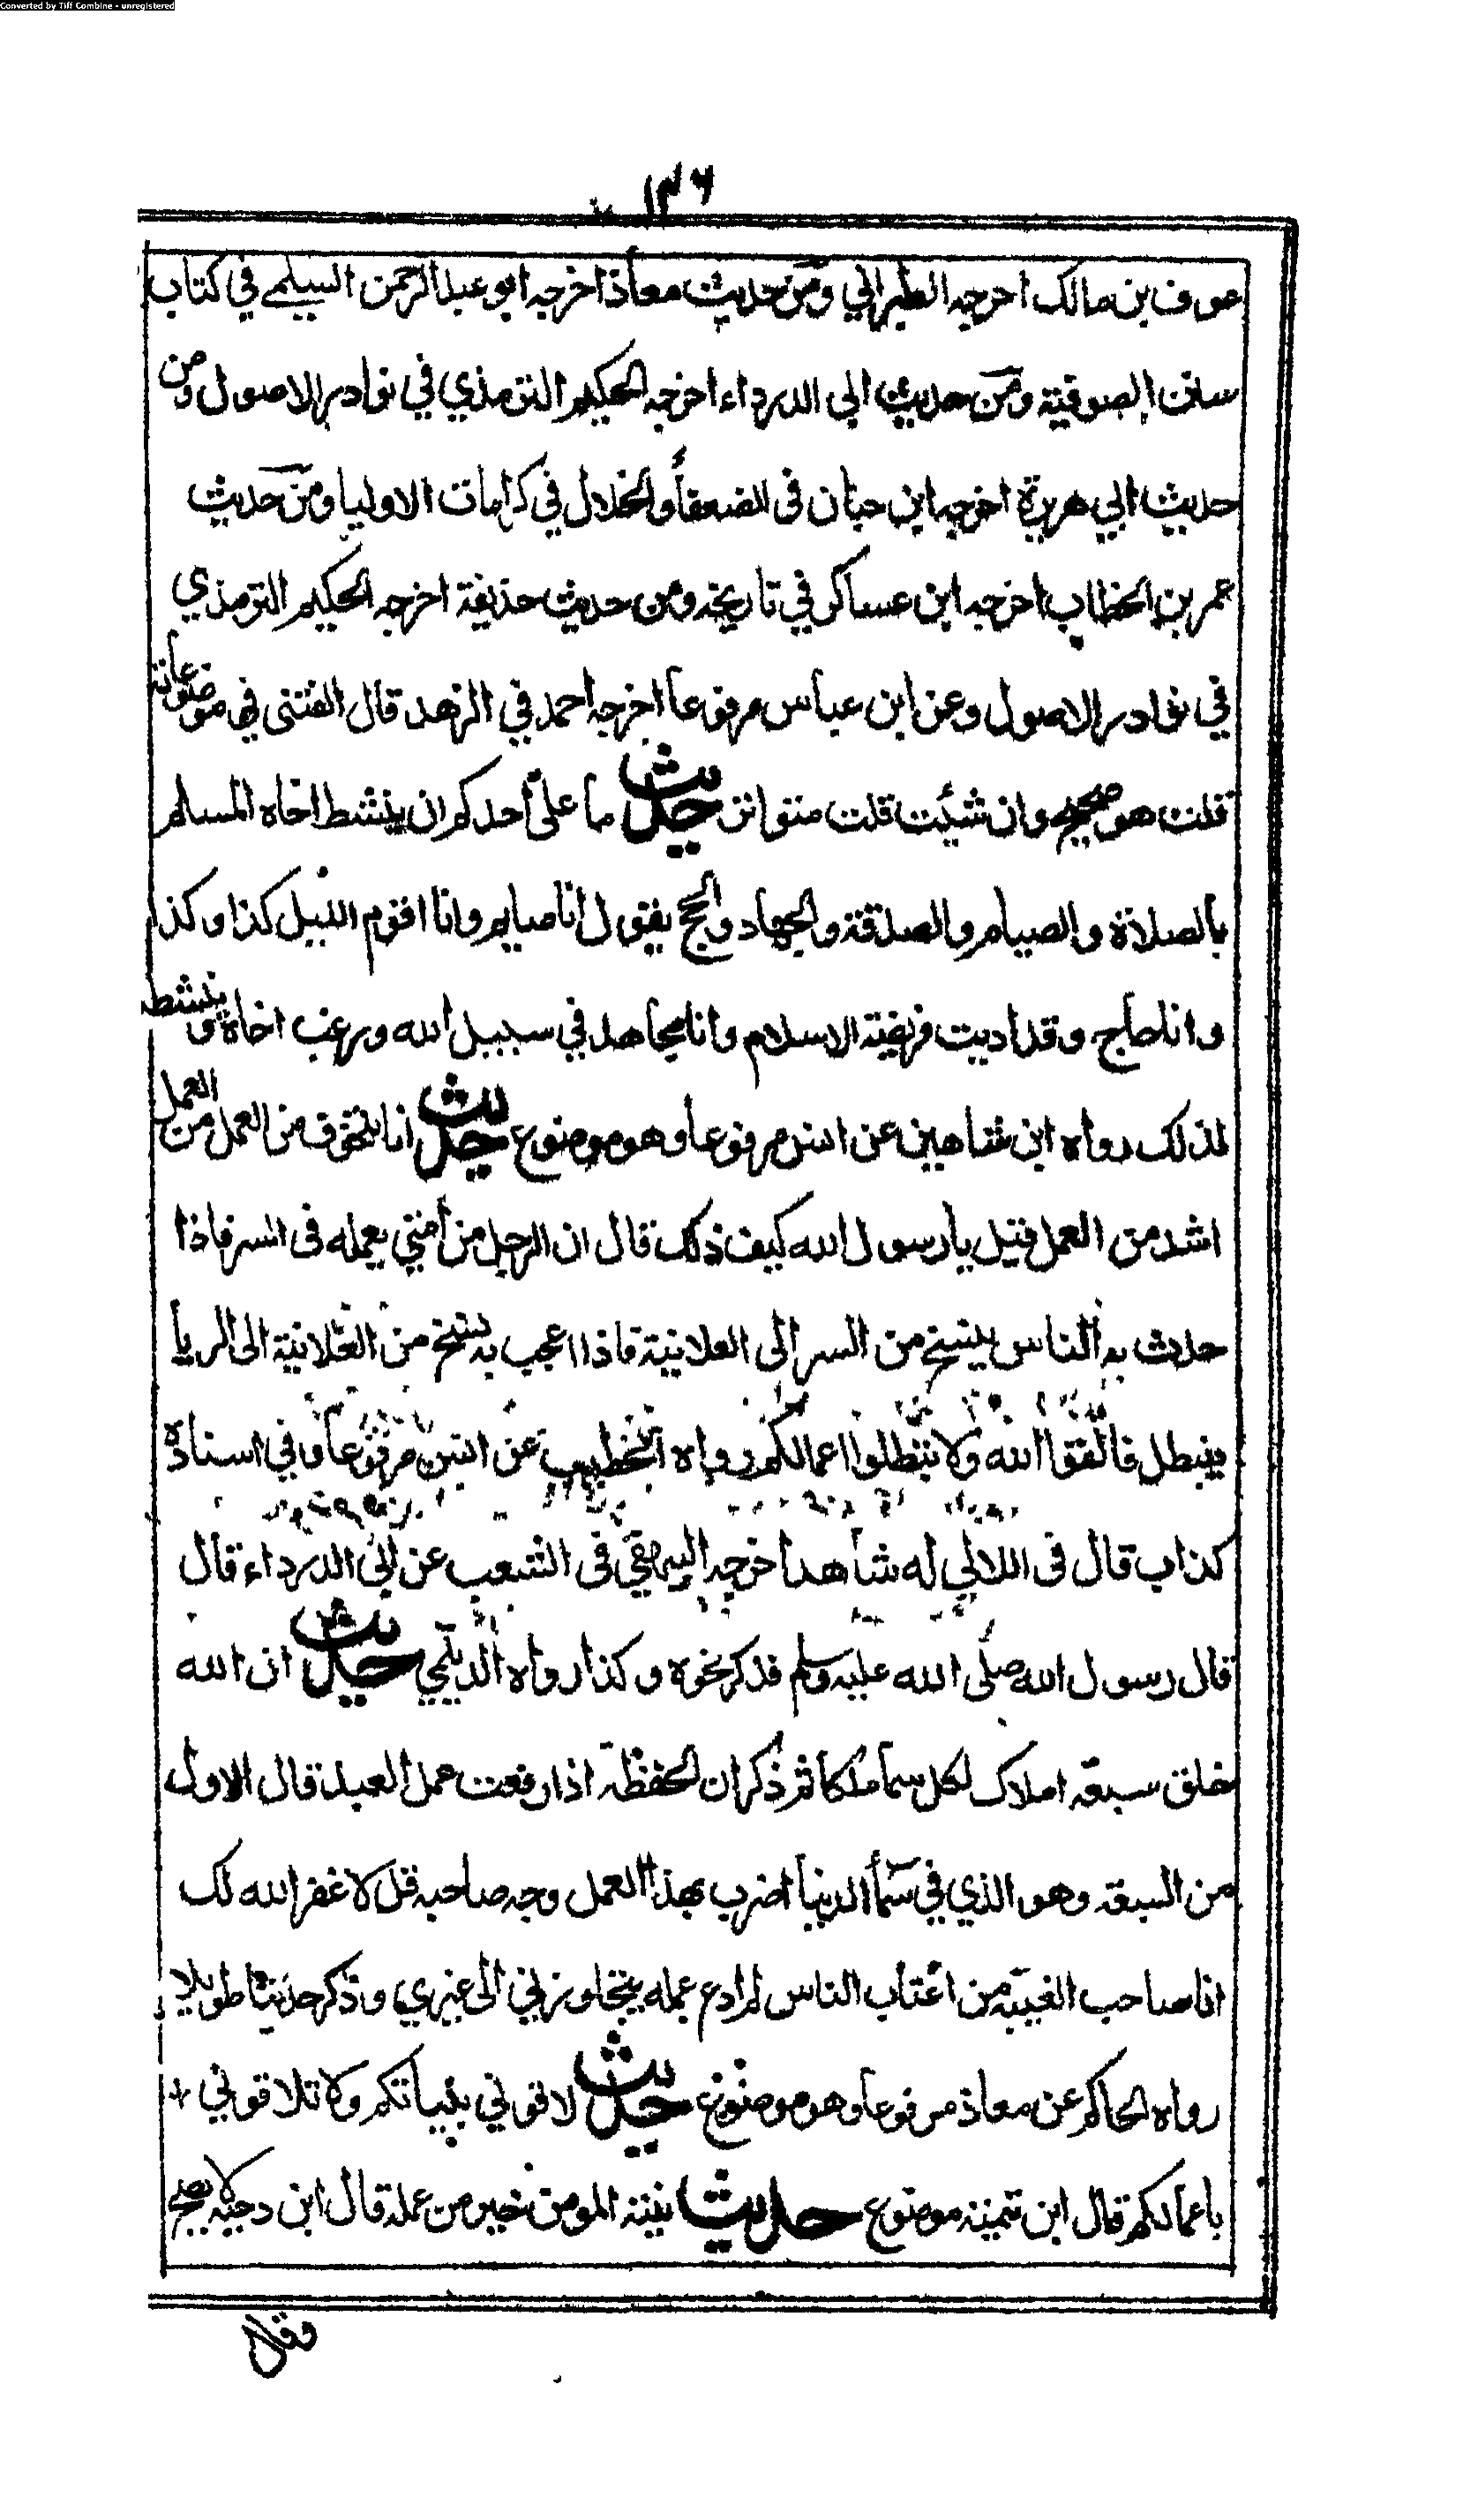 Converted by Tiff Combine - unregistered
١٣٦
عوف بن مالك اخرجه الطبراني ومن حديث معاذ اخرجه ابو عبد الرحمن السلمي في كتاب
سنن الصوفية ومن حديث ابي الدرداء اخرجه الحكيم الترمذي في نوادر الاصول ومن
حديث ابي هريرة اخرجه ابن حبان في الضعفأ والخلال في كرامات الاوليا ومن حديث
عمر بن الخطاب اخرجه ابن عساكر في تاريخه ومن حديث حذيفة اخرجه الحكيم الترمذي
في نوادر الاصول وعن ابن عباس مرفوعا اخرجه احمد في الزهد قال الفتني في موضوعاته
قلت هو صحيح وان شئت قلت متواتر حديث ما على أحدكم ان ينشط اخاه المسلم
بالصلاة والصيام والصدقة والجهاد والحج يقول انا صايم وانا اقوم الليل كذا وكذا
وانا حاج وقد اديت فريضة الاسلام وانا مجاهد في سبيل الله ويرغب اخاه وينشطه
لذلك رواه ابن شاهين عن انس مرفوعا وهو موضوع حديث انا لنتخوف من العمل من العمل
اشد من العمل قيل يا رسول الله كيف ذلك قال ان الرجل من أمتي يعمله في السر فاذا
حدث به الناس ينسخ من السر الى العلانية فاذا اعجب به ينسخ من العلانية الى الريأ
فيبطل فاتقوا الله ولا تبطلوا اعمالكم رواه الخطيب عن انس مرفوعا وفي اسناده
كذاب قال في اللالي له شاهد اخرجه البيهقي في الشعب عن ابي الدرداء قال
قال رسول الله صلى الله عليه وسلم فذكر نحوه وكذا رواه الديلمي حديث ان الله
خلق سبعة املاك لكل سمأ ملكا ثم ذكر ان الحفظة اذا رفعت عمل العبد قال الاول
من السبعة وهو الذي في سمأ الدنيا اضرب بهذا العمل وجه صاحبه قل لا غفر الله لك
انا صاحب الغيبة من اغتاب الناس لم ادع عمله يتجاوزني الى غيري وذكر حديثا طويلا
رواه الحاكم عن معاذ مرفوعا وهو موضوع حديث لاقوني بنياتكم ولا تلاقوني
باعمالكم قال ابن تيمية موضوع حديث نية المومن خير من عمله قال ابن دحية لا يصح